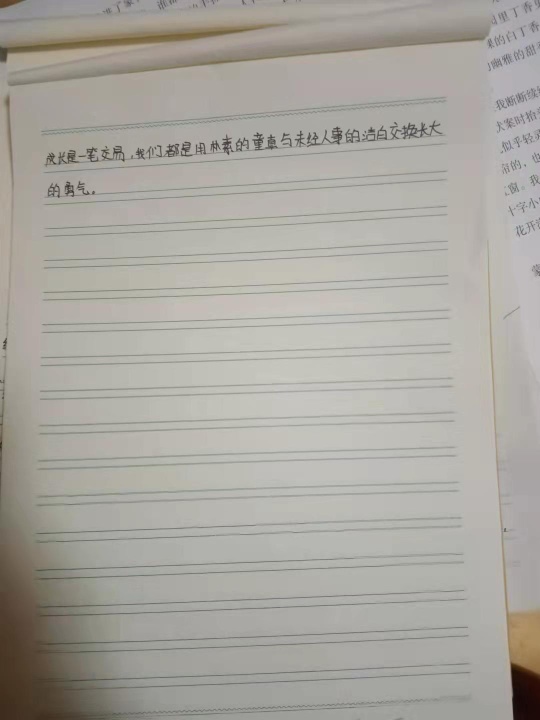 成长是一笔交易,我们都是用朴素的童真与未经人事的洁白交换长大
的勇气。
里丁香
的白丁香
幽雅的甜
我断断续
案时抬
似乎轻
帘的，也
窗。我
十字小
花开